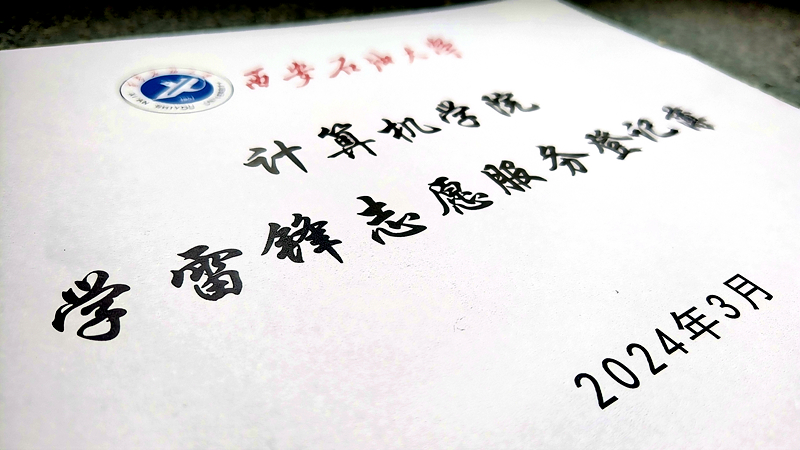 西安石油大学
计算机学院
学雷锋志愿服务登记簿
2024年3月